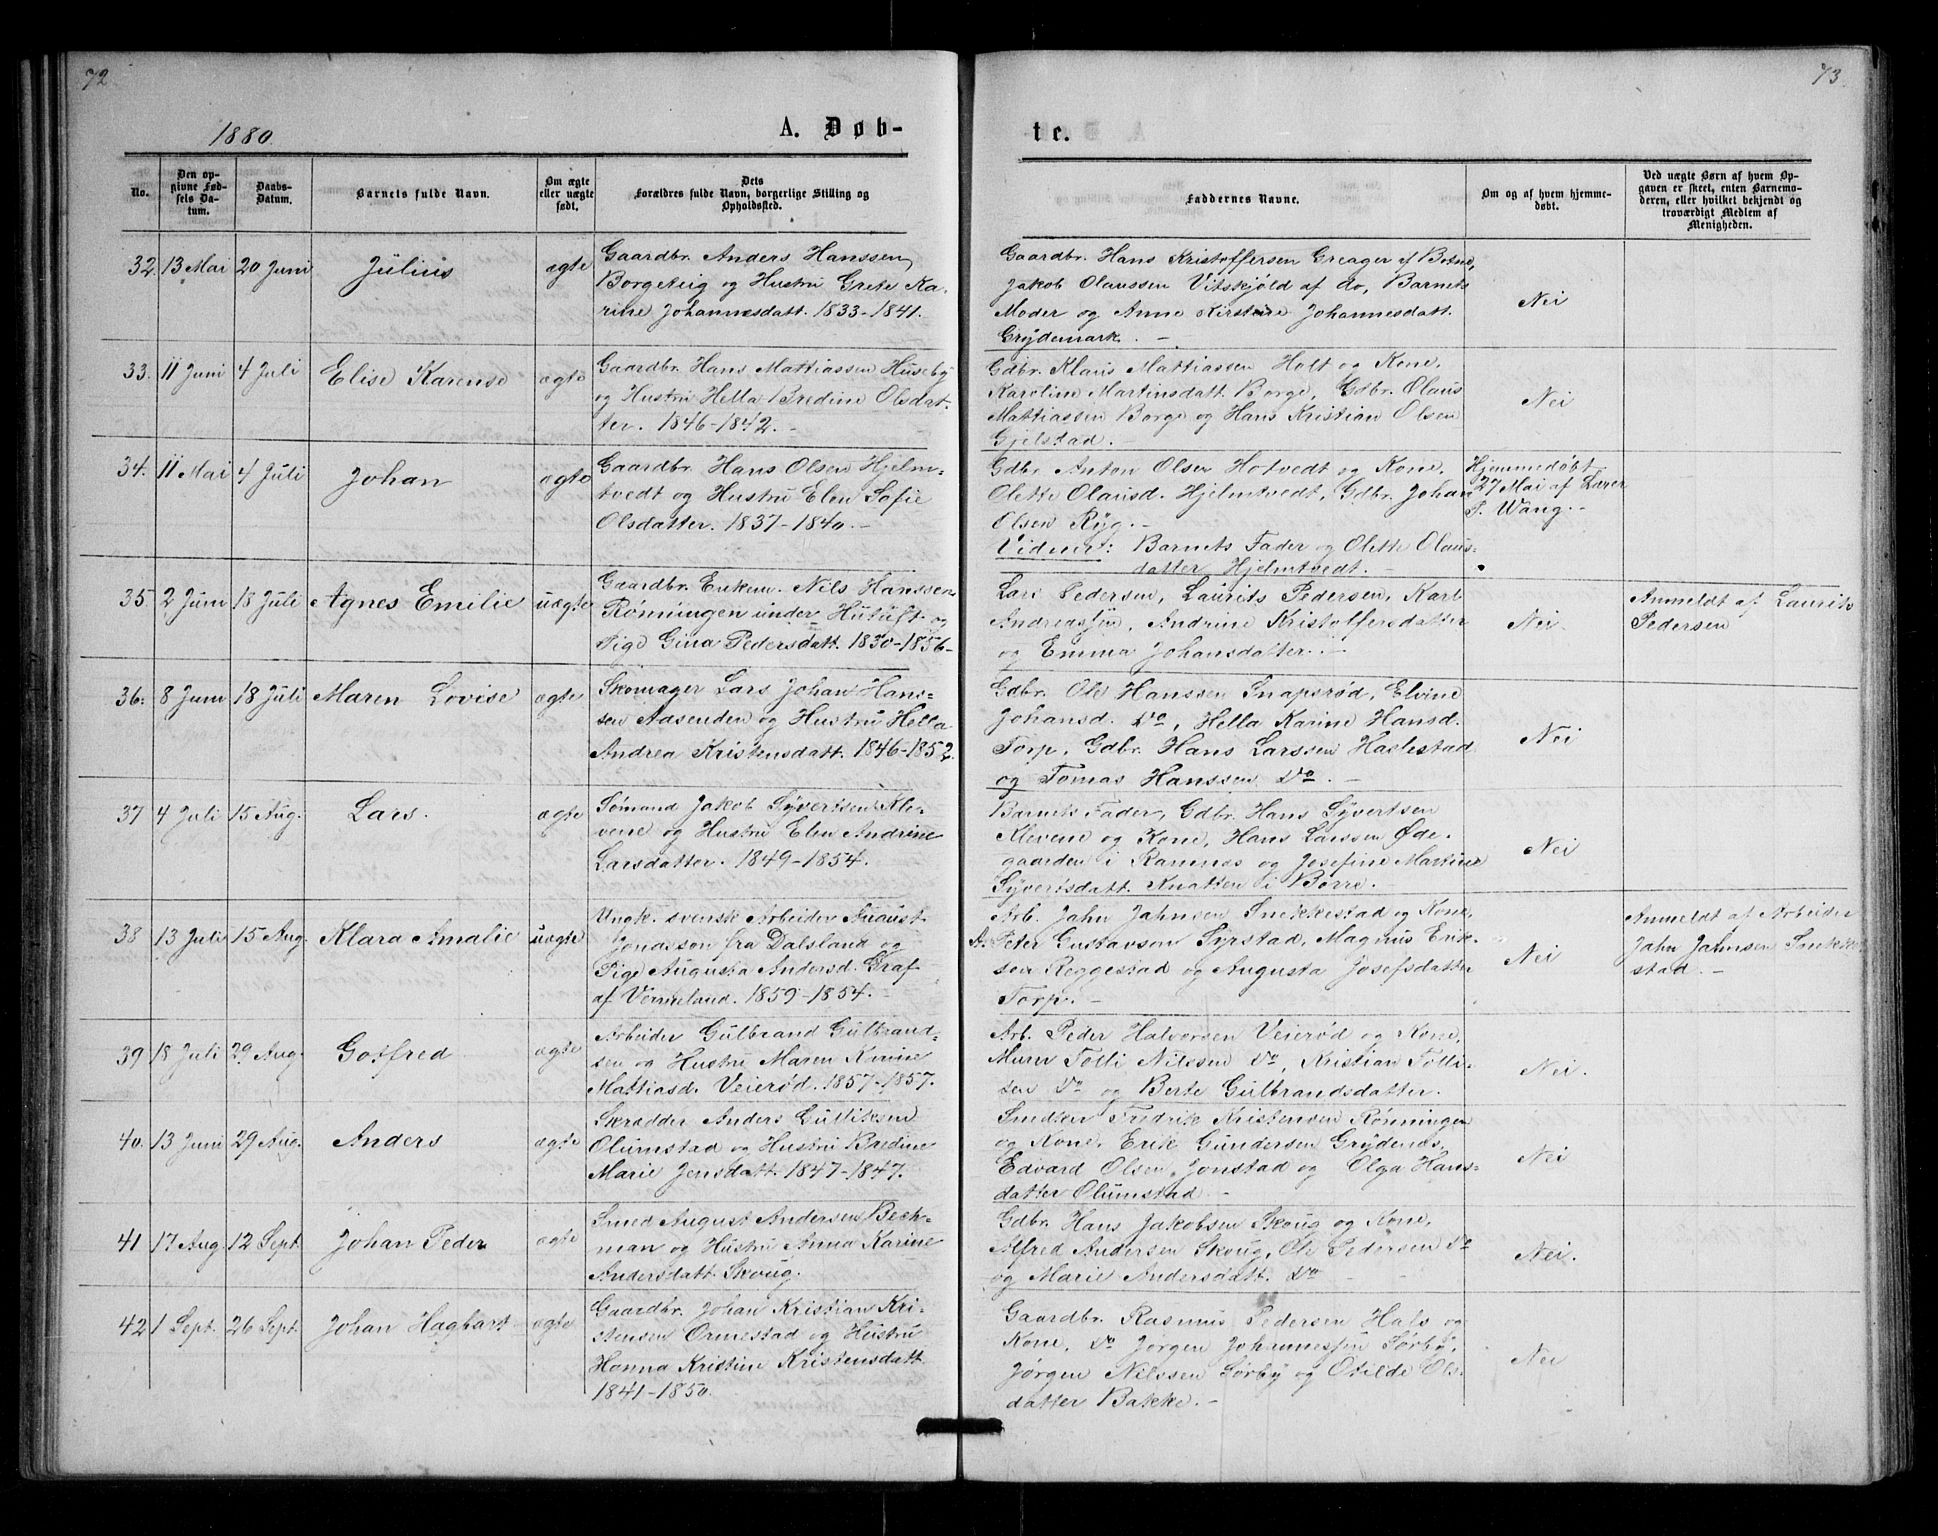 72
1880
A. Døb-
No.
Den op-
givne Fød-
sels Da-
tum.
Daabs-
Datum.
Barnets fulde Navn.
Om ægte
eller uægte
født.
Dets
Forældres fulde Navn, borgerlige Stilling og
Opholdssted.
32. 13 Mai 20 Juni Julius ægte
Gaardbr. Anders Hanssen
Borgeteig og Hustru Grete Ka-
rine Johannesdatt. 1833-1841.
33. 11 Juni 4 Juli Elise Karense ægte
Gaardbr. Hans Mattiassen Huseby
og Hustru Hella Bredine Olsdat-
ter. 1846-1842.-
34. 11 Mai 4 Juli Johan ægte
Gaardbr. Hans Olsen Hjelm-
tvedt og Hustru Elen Sofie
Olsdatter. 1837-1840.-
35. 2 Juni 18 Juli Agnes Emilie uægte
Gaardbr. Enkem. Nils Hanssen
Rønningen under Hutuft og
Pige Gina Pedersdatt. 1830-1856-
36. 8 Juni 18 Juli Maren Lovise ægte
Skomager Lars Johan Hans-
sen Aasenden og Hustru Hella
Andrea Kristensdatt. 1846-1852.
37 4 Juli 15 Aug. Lars. ægte
Sømand Jakob Syvertsen Kle-
vene og Hustru Elen Andrine
Larsdatter. 1849-1854.
38 13 Juli 15 Aug. Klara Amalie uægte
Ungk. svensk Arbeider August
Jonasson fra Dalsland og
Pige Augusta Andersd. Graf
af Vermeland. 1859-1854.-
39 18 Juli 29 Aug. Gotfred ægte
Arbeider Gulbrand Gulbrand-
sen og Hustru Maren Karine
Mattiasd. Veierød. 1857-1857.
40. 13 Juni 29 Aug. Anders ægte
Skrædder Anders Gulliksen
Olumstad og Hustru Bredine
Marie Jensdatt. 1847-1847.
41 17 Aug. 12 Sept. Johan Peder ægte
Smed August Andersen Bech-
man og Hustru Anna Karine
Andersdatt. Skoug.
42 1 Sept. 26 Sept. Johan Hagbart ægte
Gaardbr. Johan Kristian Kri-
stensen Ormestad og Hustru
Hanna Kristine Kristensdatt.
1841-1850.
73
te.
Faddernes Navne.
Om og af hvem hjemme-
døbt.
Ved uægte Børn af hvem Op-
gaven er skeet, enten Barnemo-
deren, eller hvilket bekjendt og
troværdigt Medlem af
Menigheden.
Gaardbr. Hans Kristoffersen Greager af Botne,
Jakob Olaussen Vitskjøld af do, Barnets
Moder og Anne Kirstine Johannesdatt.
Grydemark. -
Nei
Gdbr. Klaus Mattiassen Holt og Kone,
Karoline Martinsdatt. Borge, Gdbr. Olaus
Mattiassen Borge og Hans Kristian Olsen
Gjelstad. -
Nei
Gdbr. Anton Olsen Hotvedt og Kone,
Olette Olausd. Hjelmtvedt, Gdbr. Johan
Olsen Ryg.-
Vidner: Barnets Fader og Olette Olaus-
datter Hjelmtvedt.-
Hjemmedøbt
27 Mai af Lærer
P. Wang.-
Lars Pedersen, Laurits Pedersen, Karl
Andreassen, Andrine Kristoffersdatter
og Emma Johansdatter.-
Nei.
Anmeldt af Laurits
Pedersen
Gdbr. Ole Hanssen Snapsrød, Elvine
Johansd. Do, Hella Karine Hansd.
Torp, Gdbr. Hans Larssen Haslestad
og Tomas Hanssen Do. -
Nei
Barnets Fader, Gdbr. Hans Syvertsen
Klevene og Kone, Hans Larssen Øde-
gaarden i Ramnes og Josefine Martine
Syvertsdatt. Knatten i Borre.-
Nei
Arb. Jahn Jahnsen Snekkestad og Kone,
Peter Gustavson Syrstad, Magnus Erik-
sen Reggestad og Augusta Josefsdatter
Torp.-
Nei
Anmeldt af Arbeider
Jahn Jahnsen Snekke-
stad.-
Arb. Peder Halvorsen Veierød og Kone,
Murer Tolli Nilssen Do, Kristian Tolli-
sen Do og Berte Gulbrandsdatter.
Nei.
Snedker Fredrik Kristensen Rønningen
og Kone, Erik Gundersen Grydenæs,
Edvard Olsen Jonstad og Olga Hans-
datter Olumstad.-
Nei
Gdbr. Hans Jakobsen Skoug og Kone,
Alfred Andersen Skoug, Ole Pedersen Do
og Marie Andersdatt. Do -
Nei.
Gaardbr. Rasmus Pedersen Hals og
Kone, Do Jørgen Johannessen Sørby,
Jørgen Nilssen Sørby og Otilde Ols-
datter Bakke.-
Nei